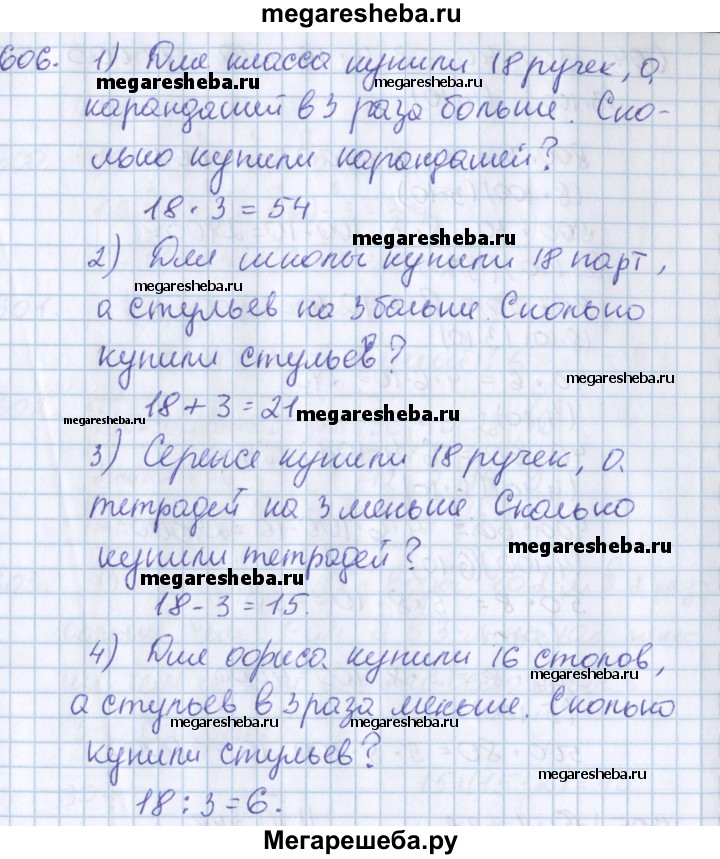 megaresheba.ru
606. 1) Для класса купили 18 ручек, а
megaresheba.ru megaresheba.ru
карандашей в 3 раза больше. Ско-
лько купили карандашей?
18 · 3 = 54
megaresheba.ru
2) Для школы купили 18 парт,
megaresheba.ru
а стульев на 3 больше. Сколько
купили стульев?
megaresheba.ru
18 + 3 = 21
megaresheba.ru megaresheba.ru
3) Сереже купили 18 ручек, а
тетрадей на 3 меньше. Сколько
купили тетрадей?
megaresheba.ru
megaresheba.ru
18 - 3 = 15.
4) Для офиса купили 16 столов,
megaresheba.ru
а стульев в 3 раза меньше. Сколько
megaresheba.ru megaresheba.ru
купили стульев?
megaresheba.ru
18 : 3 = 6.
Мегарешеба.ру